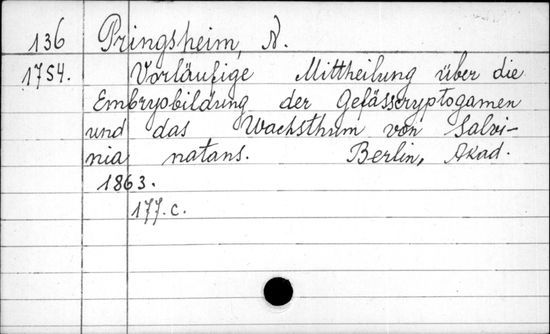 136 Pringsheim, N.
1754. Vorläufige Mittheilung über die
Embryobildung der Gefässcryptogamen
und das Wachsthum von Salvi-
nia natans. Berlin, Akad.
1863.
177.c.